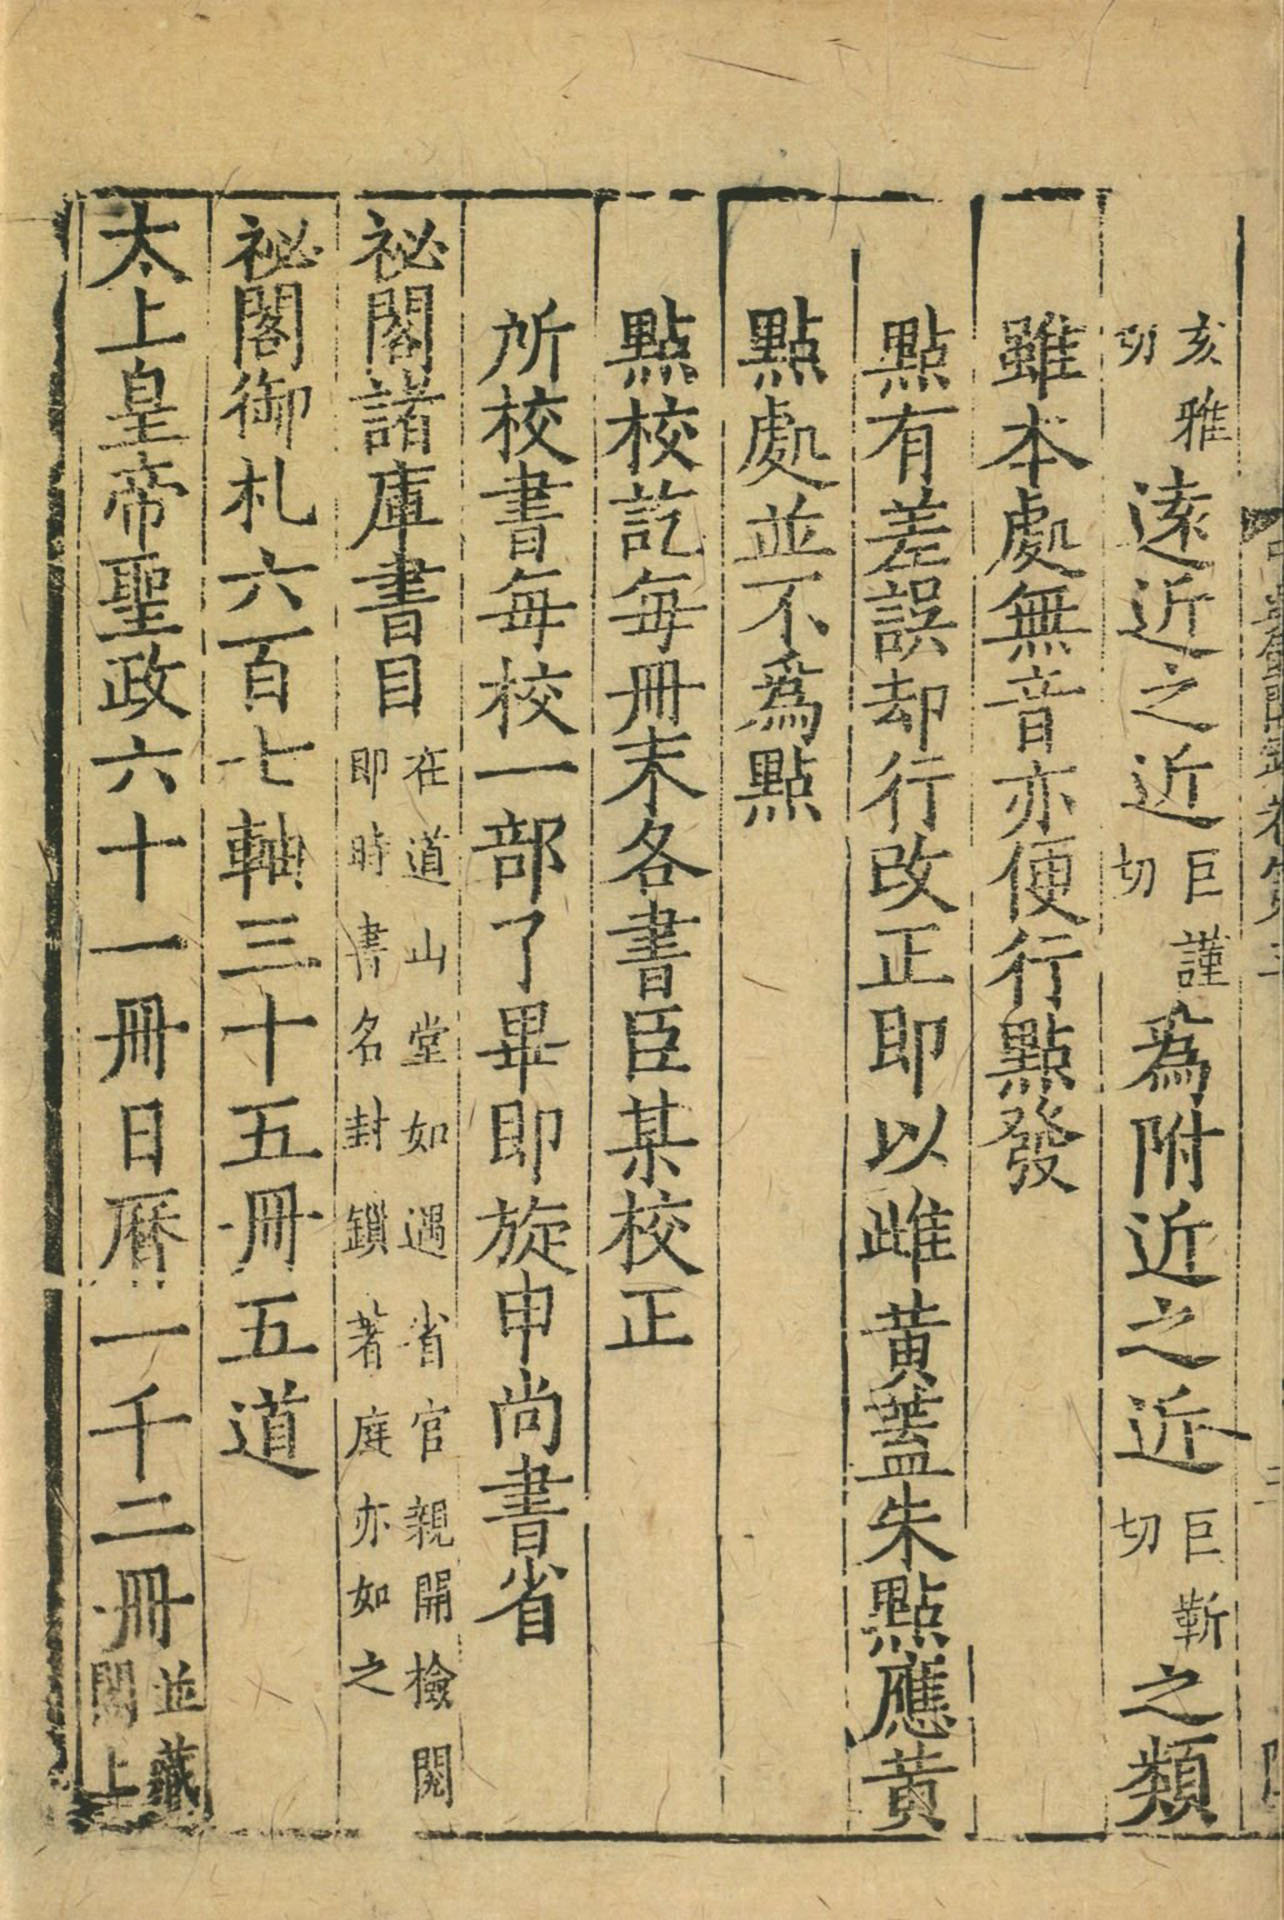 亥雅切逺近之近巨謹切爲附近之近巨靳切之類
雖本處無音亦便行點發
點有差誤却行改正即以雌黃蓋朱點應黃
點處並不爲點
點校訖每冊末各書臣某校正
所校書每校一部了畢即旋申尚書省
祕閣諸庫書目在道山堂如遇省官親開檢閱即時書名封鎖著庭亦如之
祕閣御札六百七軸三十五冊五道
太上皇帝聖政六十一冊日曆一千二冊並藏閣上